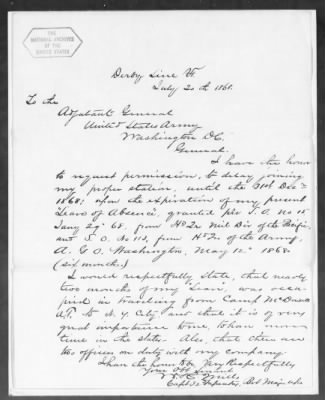 THE
NATIONAL ARCHIVES
OF THE
UNITED STATES
Derby Line Vt
July 20th 1868.
To the
Adjutant General
United States Army
Washington D.C.
General.
I have the honor
to request permission, to delay joining
my proper station, until the 31st Dec
1868; upon the expiration of my present
Leave of Absence, granted per S.O. No 15
Jany 29" 68. from Hd Qr Mil Div of the Pacific
and S.O. No 113, from Hd Qr of the Army,
A.G.O. Washington, May 12" 1868
(six months.)
I would respectfully State, that nearly
two months of my 'Leave', was occu-
pied in traveling from Camp McDowell
A.T. to N.Y. City and that it is of very
great importance to me, to have more
time in the states. Also, that there are
two officers on duty with my company.
I have the honor to be Very Respectfully
Your Obt Servant
Mills
Capt